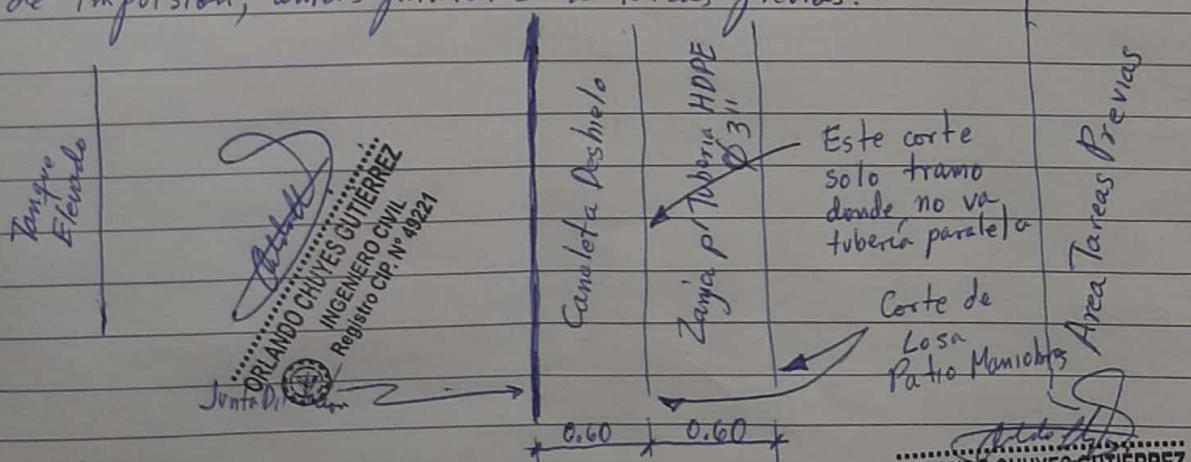 de impulsión,
Tanque
Elevado
ORLANDO CHUYES GUTIERREZ
INGENIERO CIVIL
Registro CIP. N° 49221
Junta
Canaleta Deshielo
Zanja p' Tubería HDPE
Ø 3"
Este corte
solo tramo
donde no va
tubería paralela
Corte de
Losa
Patio Maniobras
Area Tareas Previas
0.60
0.60
CHUYES GUTIÉRREZ